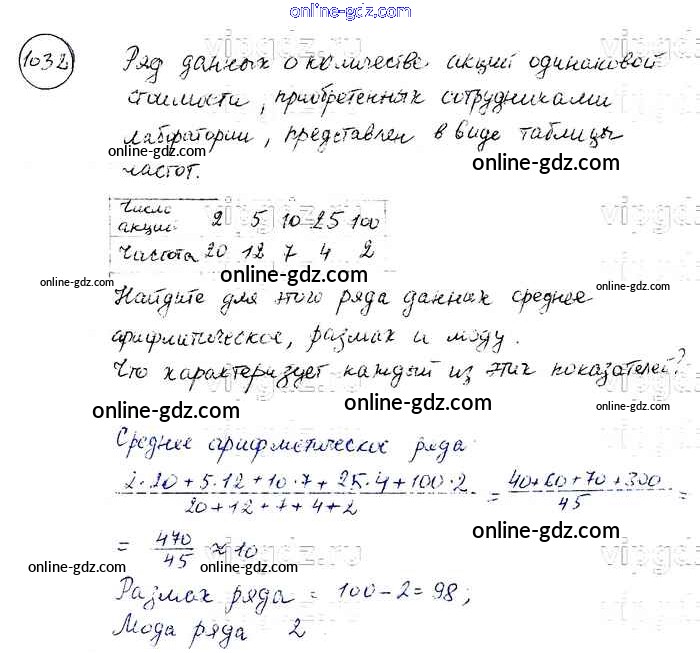 online-gdz.com
1032
Ряд данных о количестве акций одинаковой
стоимости, приобретенных сотрудниками
лаборатории, представлен в виде таблицы
online-gdz.com
online-gdz.com
частот.
Число акций 2 5 10 25 100
Частота 20 12 7 4 2
online-gdz.com
online-gdz.com
online-gdz.com
Найдите для этого ряда данных среднее
арифмитическое, размах и моду.
Что характеризует каждый из этих показателей?
online-gdz.com
online-gdz.com
online-gdz.com
Среднее арифметическое ряда
2·20+5·12+10·7+25·4+100·2 / 20+12+7+4+2 = 40+60+70+300 / 45 =
= 470 / 45 ≈ 10
online-gdz.com
online-gdz.com
online-gdz.com
Размах ряда = 100-2=98;
Мода ряда 2
online-gdz.com